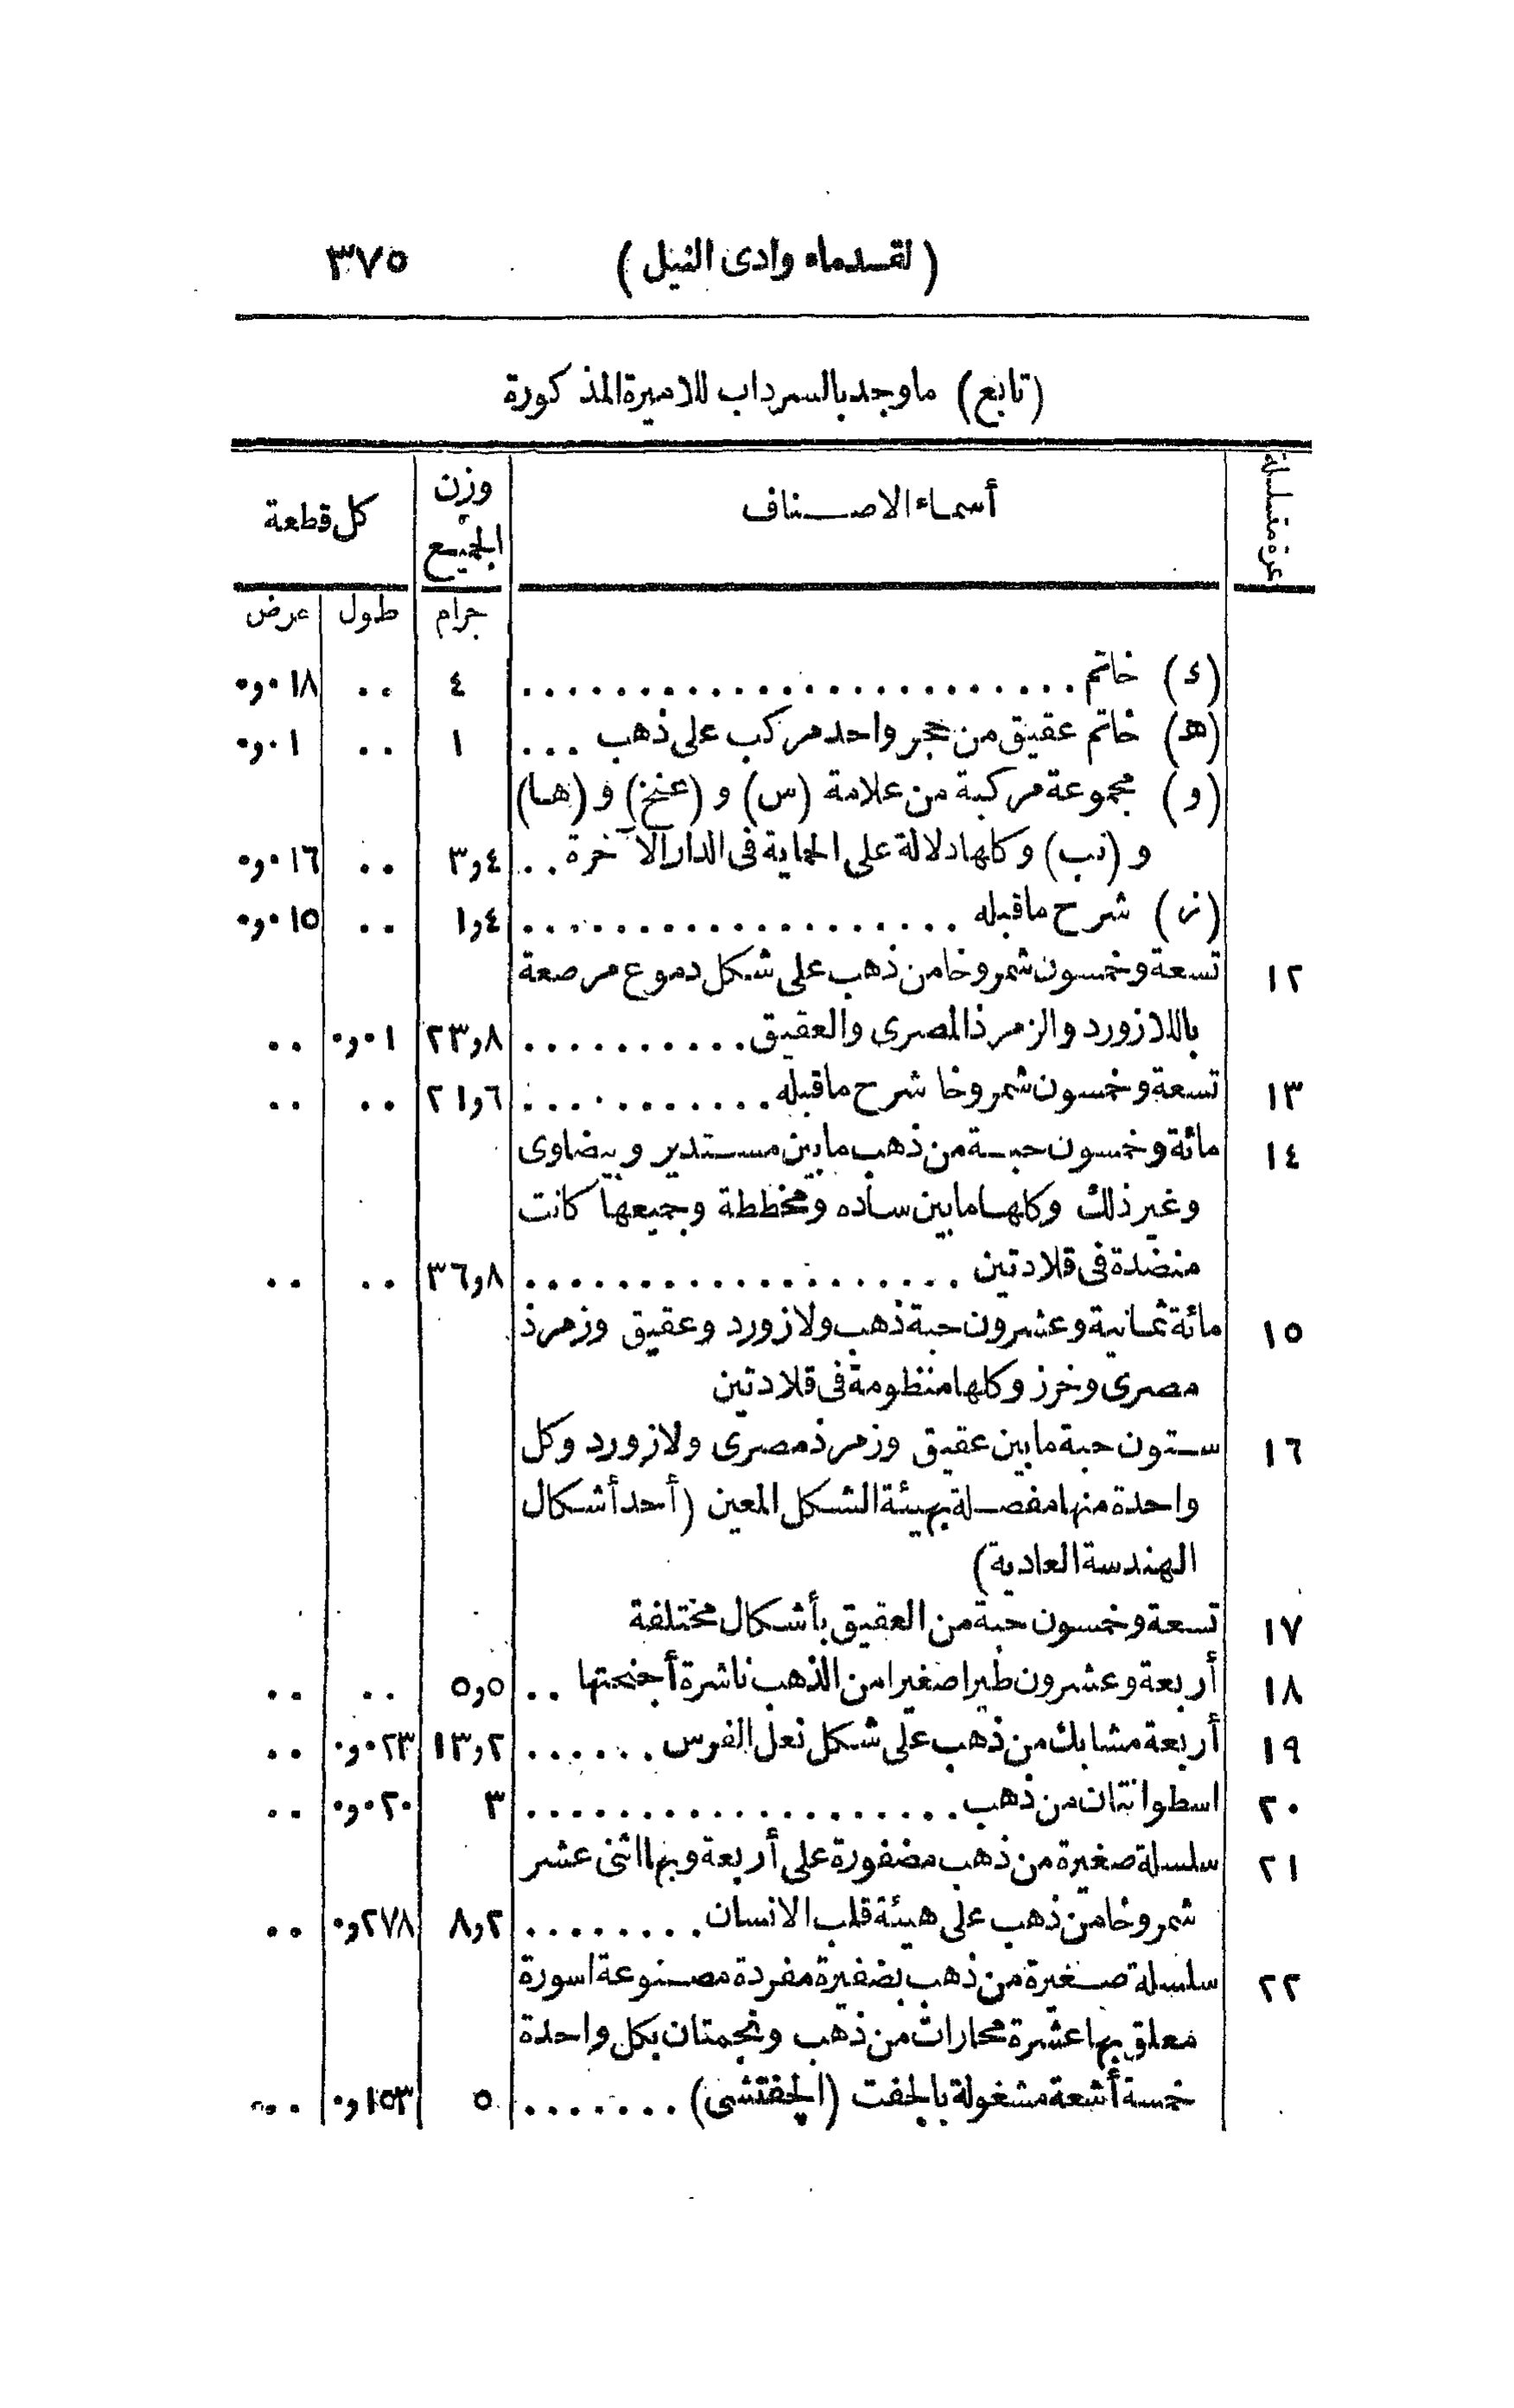 (لقدماء وادى النيل) ٣٧٥
(تابع) ماوجد بالسرداب للاميرة المذكورة
نمرة متسلسلة أسماء الاصناف وزن الجميع كل قطعة
جرام طول عرض
(د) خاتم .... ٤ .. ٠٫٠١٨
(هـ) خاتم عقيق من حجر واحد مركب على ذهب ... ١ .. ٠٫٠١
(و) مجموعة مركبة من علامة (س) و (عنخ) و (هـا)
و (نب) وكلها دلالة على الحماية فى الدار الآخرة .. ٣٫٤ .. ٠٫٠١٦
(ز) شرح ماقبله .... ١٫٤ .. ٠٫٠١٥
١٢ تسعة وخمسون شمروخا من ذهب على شكل دموع مرصعة
باللازورد والزمرذ المصرى والعقيق .... ٢٣٫٨ ٠٫٠١ ..
١٣ تسعة وخمسون شمروخا شرح ماقبله .... ٢١٫٦ .. ..
١٤ مائة وخمسون حبة من ذهب مابين مستدير وبيضاوى
وغير ذلك وكلها مابين ساده ومخططة وجميعها كانت
منضدة فى قلادتين .... ٣٦٫٨ .. ..
١٥ مائة ثمانية وعشرون حبة ذهب ولازورد وعقيق وزمرذ
مصرى وخرز وكلها منظومة فى قلادتين
١٦ ستون حبة مابين عقيق وزمرذ مصرى ولازورد وكل
واحدة منها مفصلة بهيئة الشكل المعين (أحد أشكال
الهندسة العادية)
١٧ تسعة وخمسون حبة من العقيق بأشكال مختلفة
١٨ أربعة وعشرون طيرا صغيرا من الذهب ناشرة أجنحتها .. ٥٫٥ .. ..
١٩ أربعة مشابك من ذهب على شكل نعل الفرس .... ١٣٫٢ ٠٫٠٢٣ ..
٢٠ اسطوانتان من ذهب .... ٣ ٠٫٠٢٠ ..
٢١ سلسلة صغيرة من ذهب مضفورة على أربعة وبها اثنى عشر
شمروخا من ذهب على هيئة قلب الانسان .... ٨٫٢ ٠٫٢٧٨ ..
٢٢ سلسلة صغيرة من ذهب بضفيرة مفردة مصنوعة اسورة
معلق بها عشرة محارات من ذهب ونجمتان بكل واحدة
خمسة أشعة مشغولة بالجفت (الجفتشى) .... ٥ ٠٫١٥٣ ..